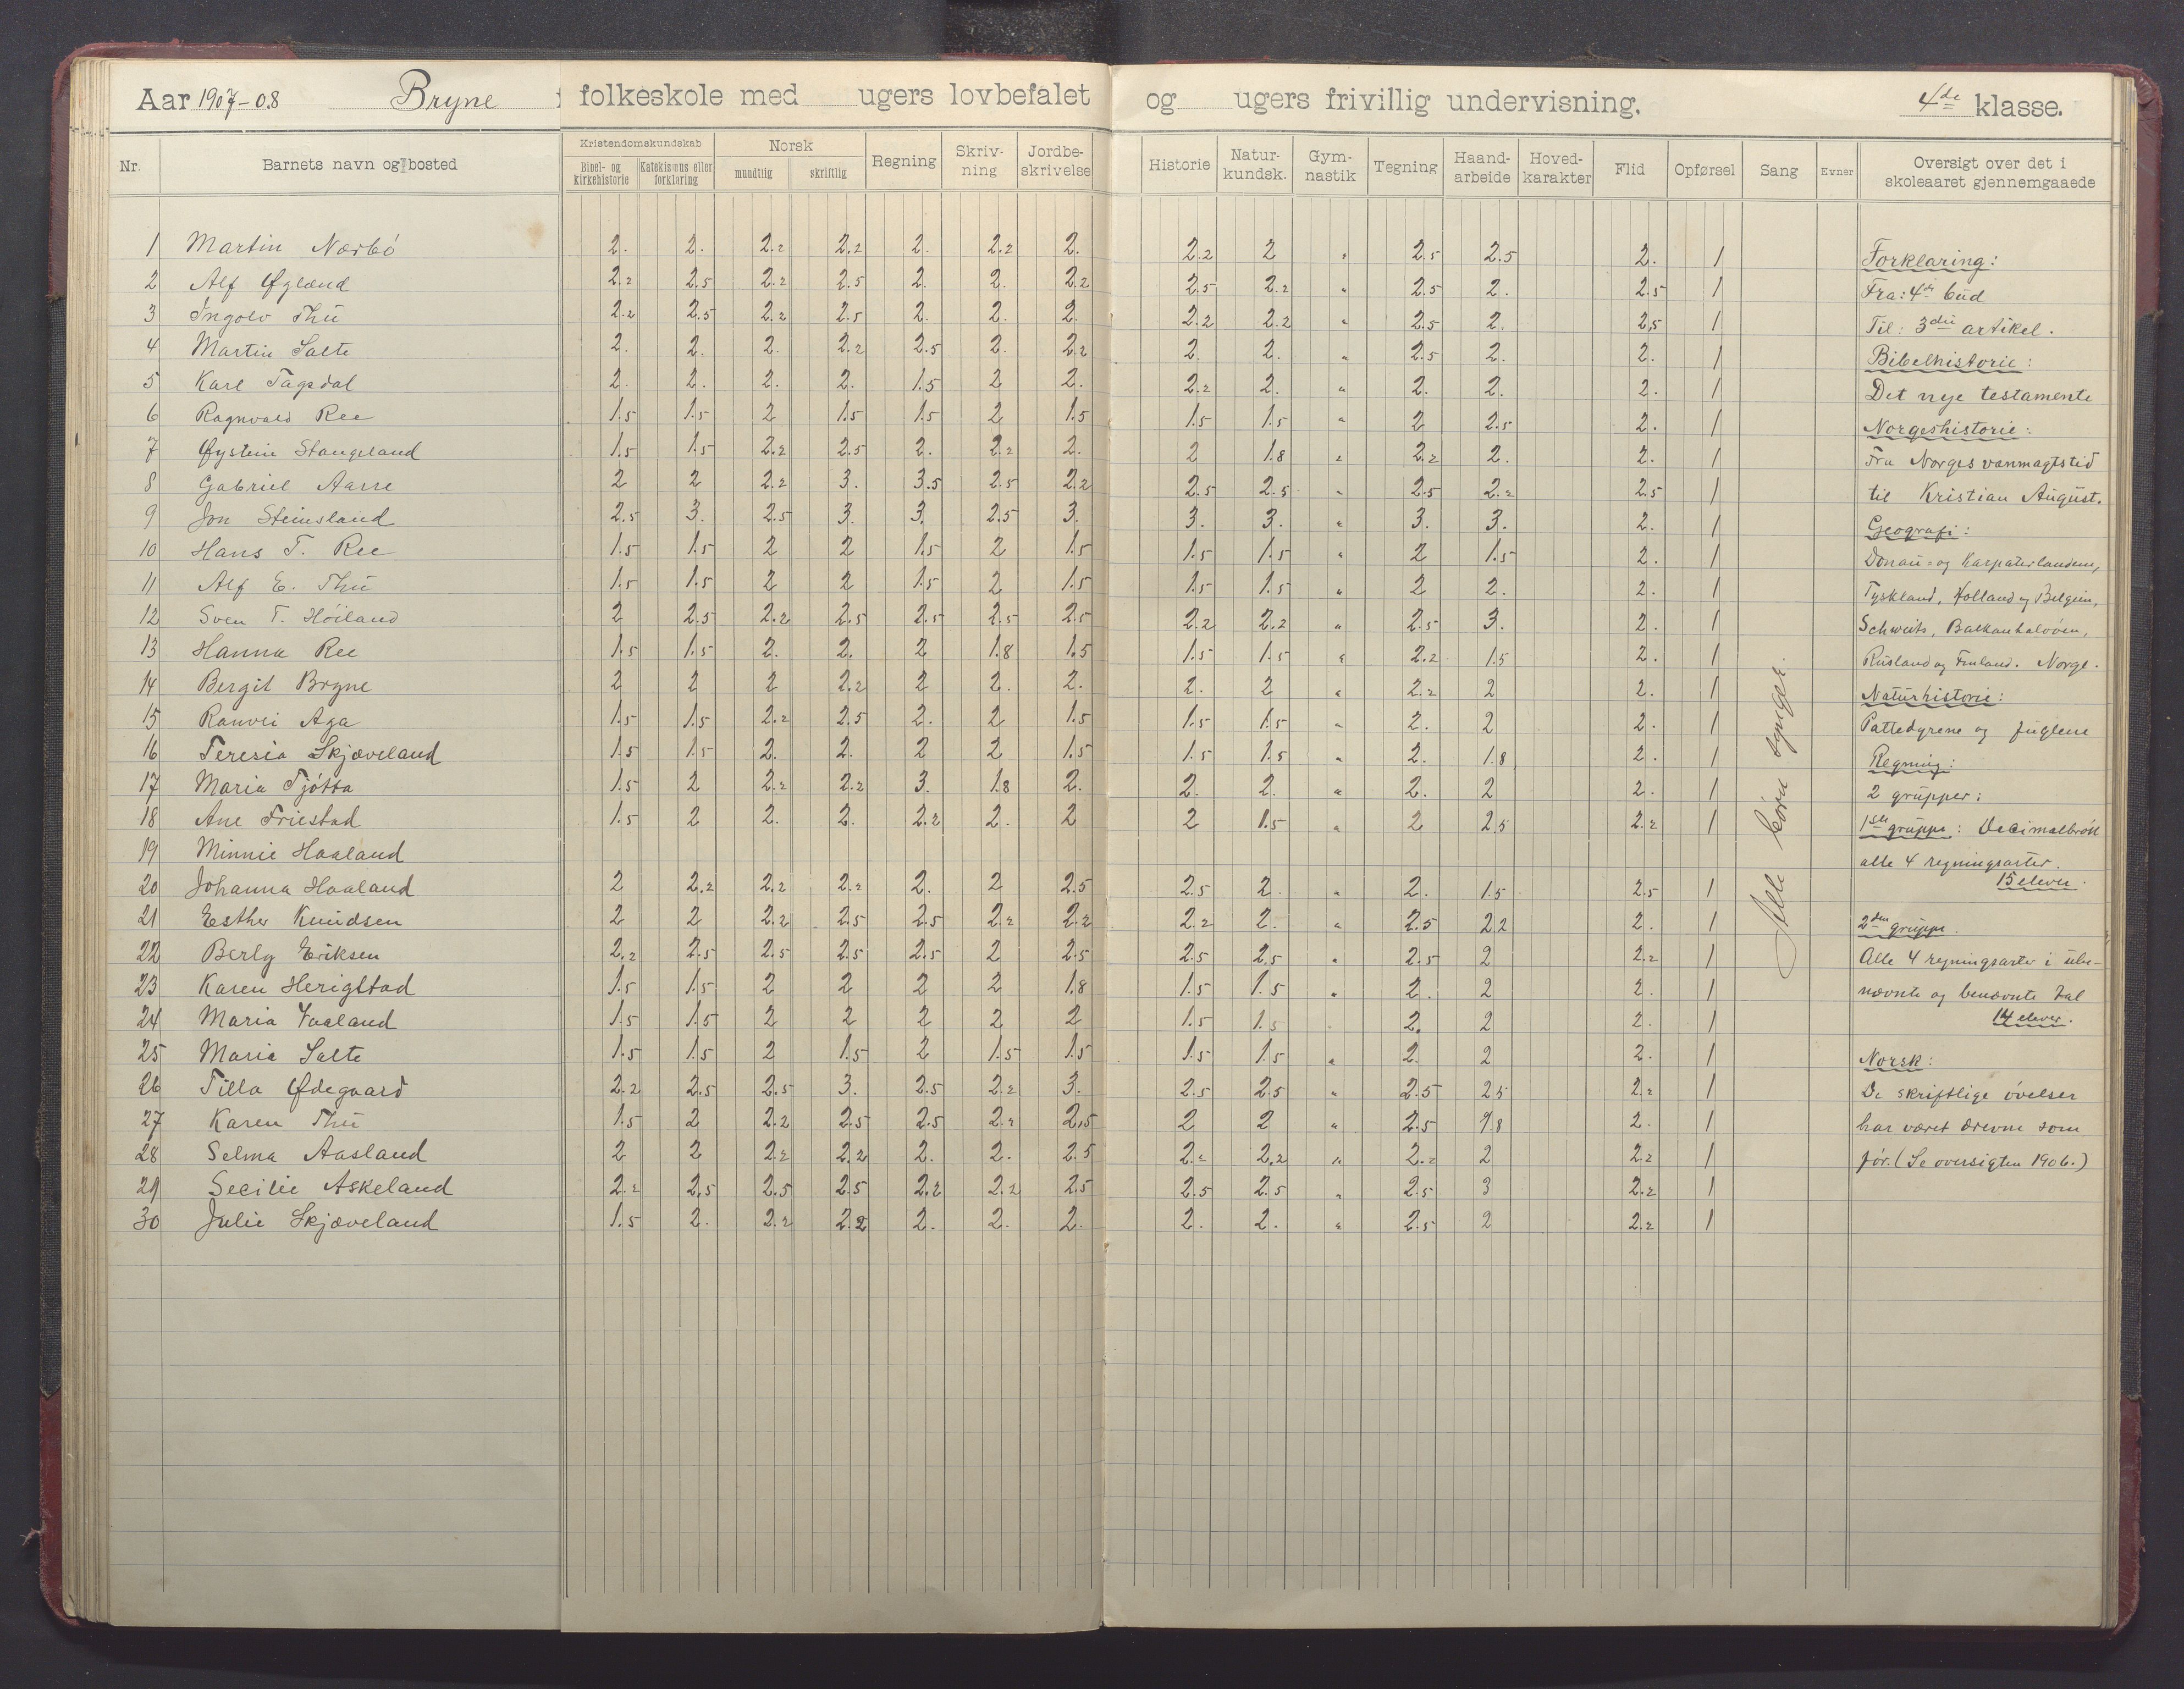 Aar 1907-08 Bryne folkeskole med ugers lovbefalet og ugers frivillig undervisning. 4de klasse.
Nr. Barnets navn og bosted Kristendomskundskab Bibel- og kirkehistorie Katekismus eller forklaring Norsk mundtlig skriftlig Regning Skrivning Jordbeskrivelse Historie Naturkundsk. Gymnastik Tegning Haandarbeide Hovedkarakter Flid Opførsel Sang Evner Oversigt over det i skoleaaret gjennemgaaede
1 Martin Nærbö 2. 2. 2.2 2.2 2. 2.2 2. 2.2 2 " 2.5 2.5 2. 1
2 Alf Øgland 2.2 2.5 2.2 2.5 2. 2. 2.2 2.5 2.2 " 2.5 2. 2.5 1
3 Ingolv Thu 2.2 2.5 2.2 2.5 2. 2. 2. 2.2 2.2 " 2.5 2. 2.5 1
4 Martin Salte 2. 2. 2. 2.2 2.5 2. 2.2 2. 2. " 2.5 2. 2. 1
5 Karl Tagsdal 2. 2. 2. 2. 1.5 2 2. 2.2 2. " 2. 2. 2. 1
6 Ragnvald Ree 1.5 1.5 2 1.5 1.5 2 1.5 1.5 1.5 " 2 2.5 2. 1
7 Øystein Stangeland 1.5 1.5 2.2 2.5 2. 2.2 2. 2 1.8 " 2.2 2. 2. 1
8 Gabriel Aarre 2 2 2.2 3. 3.5 2.5 2.2 2.5 2.5 " 2.5 2.2 2.5 1
9 Jon Steinsland 2.5 3. 2.5 3. 3. 2.5 3. 3. 3. " 3. 3. 2. 1
10 Hans T. Ree 1.5 1.5 2 2 1.5 2 1.5 1.5 1.5 " 2 1.5 2. 1
11 Alf E. Thu 1.5 1.5 2 2 1.5 2 1.5 1.5 1.5 " 2 2. 2. 1
12 Sven T. Höiland 2 2.5 2.2 2.5 2.5 2.5 2.5 2.2 2.2 " 2.5 3. 2. 1
13 Hanna Ree 1.5 1.5 2. 2. 2 1.8 1.5 1.5 1.5 " 2.2 1.5 2. 1
14 Bergit Bryne 2 2 2 2.2 2 2. 2. 2. 2 " 2.2 2 2. 1
15 Ranvei Aga 1.5 1.5 2.2 2.5 2. 2 1.5 1.5 1.5 " 2. 2 2. 1
16 Teresia Skjæveland 1.5 1.5 2. 2. 2 2 1.5 1.5 1.5 " 2. 1.8 2. 1
17 Maria Tjötta 1.5 2 2.2 2.2 3. 1.8 2. 2. 2. " 2. 2 2. 1
18 Ane Friestad 1.5 2 2. 2. 2.2 2. 2 2 1.5 " 2 2.5 2.2 1
19 Minnie Haaland
20 Johanna Haaland 2 2.2 2.2 2.2 2. 2 2.5 2.5 2. " 2. 1.5 2.5 1
21 Esther Knudsen 2 2 2.2 2.5 2.5 2.2 2.2 2.2 2. " 2.5 2.2 2. 1
22 Berly Eriksen 2.2 2.5 2.5 2.5 2.5 2 2.5 2.5 2.5 " 2.5 2 2.2 1
23 Karen Herigstad 1.5 1.5 2 2 2 2 1.8 1.5 1.5 " 2. 2 2. 1
24 Maria Vaaland 1.5 1.5 2 2 2 2 2 1.5 1.5 2. 2 2. 1
25 Maria Salte 1.5 1.5 2 1.5 2 1.5 1.5 1.5 1.5 " 2. 2 2. 1
26 Tilla Ødegaard 2.2 2.5 2.5 3. 2.5 2.2 3. 2.5 2.5 " 2.5 2.5 2.2 1
27 Karen Thu 1.5 2 2.2 2.5 2.5 2.2 2.5 2 2 " 2.5 1.8 2. 1
28 Selma Aasland 2 2 2.2 2.2 2. 2. 2.5 2.2 2.2 " 2.2 2 2.2 1
29 Secilie Askeland 2.2 2.5 2.5 2.5 2.2 2.2 2.5 2.5 2.5 " 2.5 3 2.2 1
30 Julie Skjæveland 1.5 2. 2.2 2.2 2. 2. 2. 2. 2. " 2.5 2 2.2 1
Alle börn synger.
Forklaring:
Fra: 4de bud
Til: 3die artikel.
Bibelhistorie:
Det nye testamente
Norgeshistorie:
Fra Norges vanmagtstid
til Kristian August.
Geografi:
Donau- og Karpaterlandene,
Tyskland, Holland og Belgien,
Schweits, Balkanhalvöen,
Rusland og Finland. Norge.
Naturhistorie:
Pattedyrene og fuglene
Regning:
2 grupper:
1ste gruppe: Decimalbrök
alle 4 regningsarter.
15 elever.
2den gruppe.
Alle 4 regningsarter i ube-
nævnte og benævnte tal
14 elever.
Norsk:
De skriftlige övelser
har været drevne som
för. (Se oversigten 1906.)